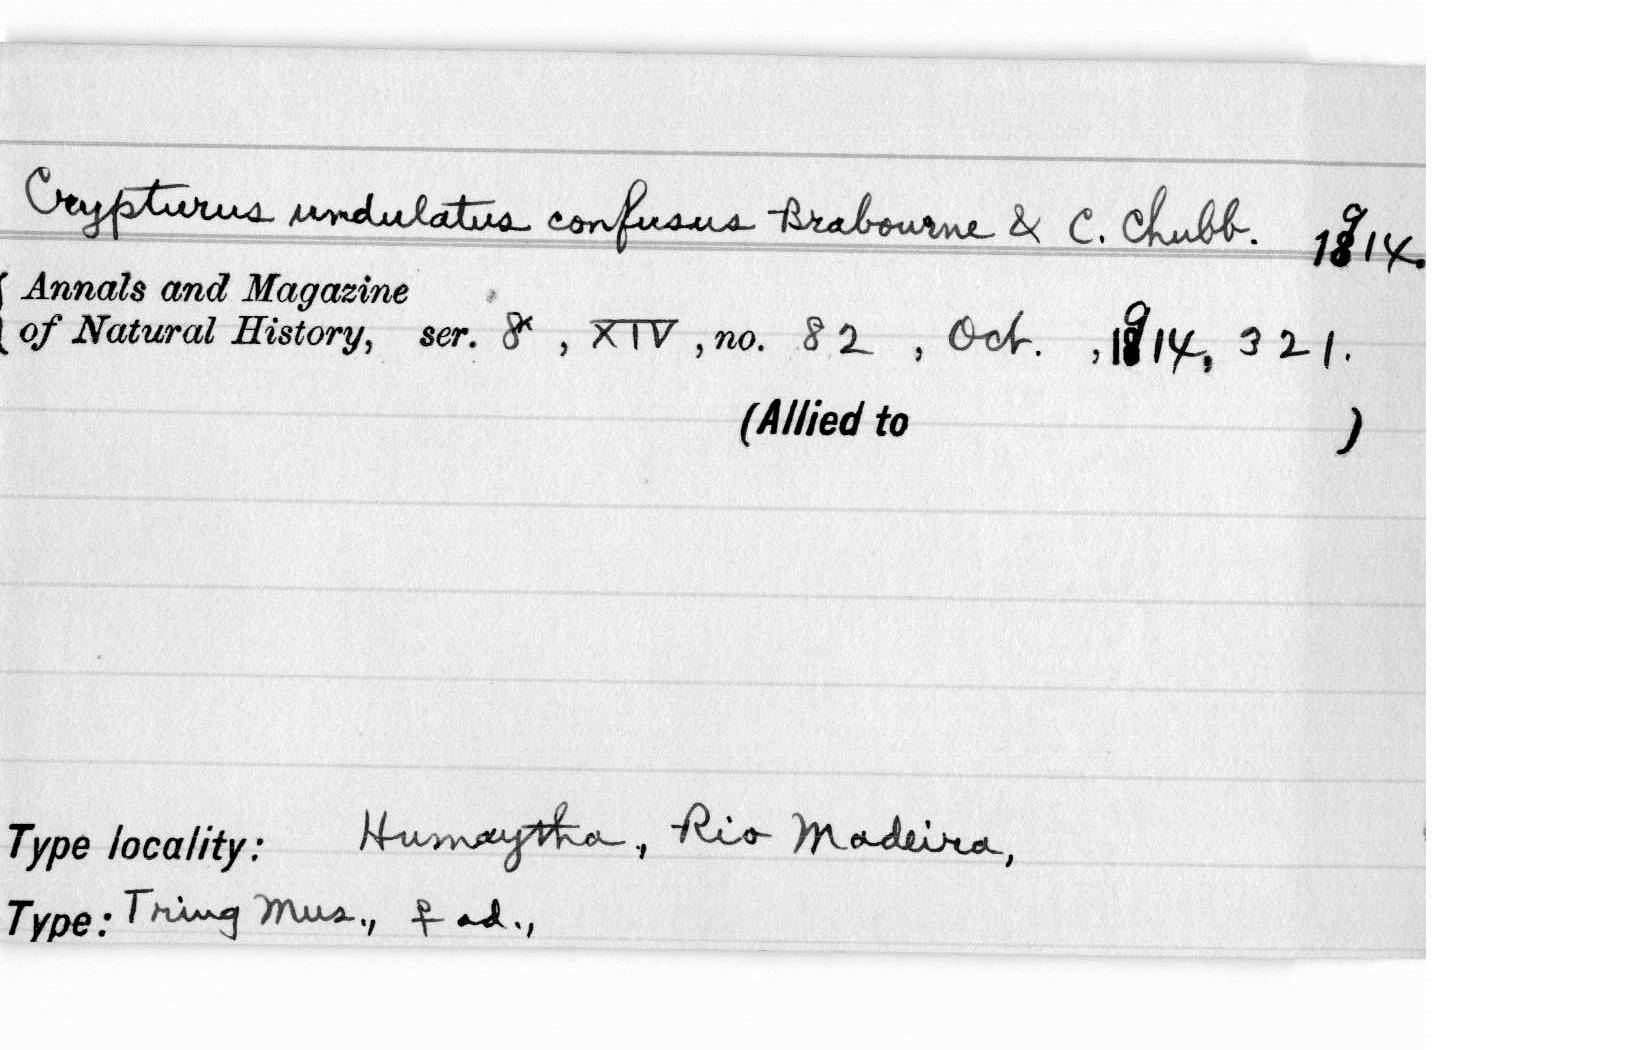 Crypturus undulatus confusus Brabourne & C. Chubb. 1914.
Annals and Magazine
of Natural History, ser. 8*, XIV, no. 82, Oct. , 1914, 321.
(Allied to )
Type locality: Humaytha, Rio Madeira,
Type: Tring Mus., ♀ ad.,